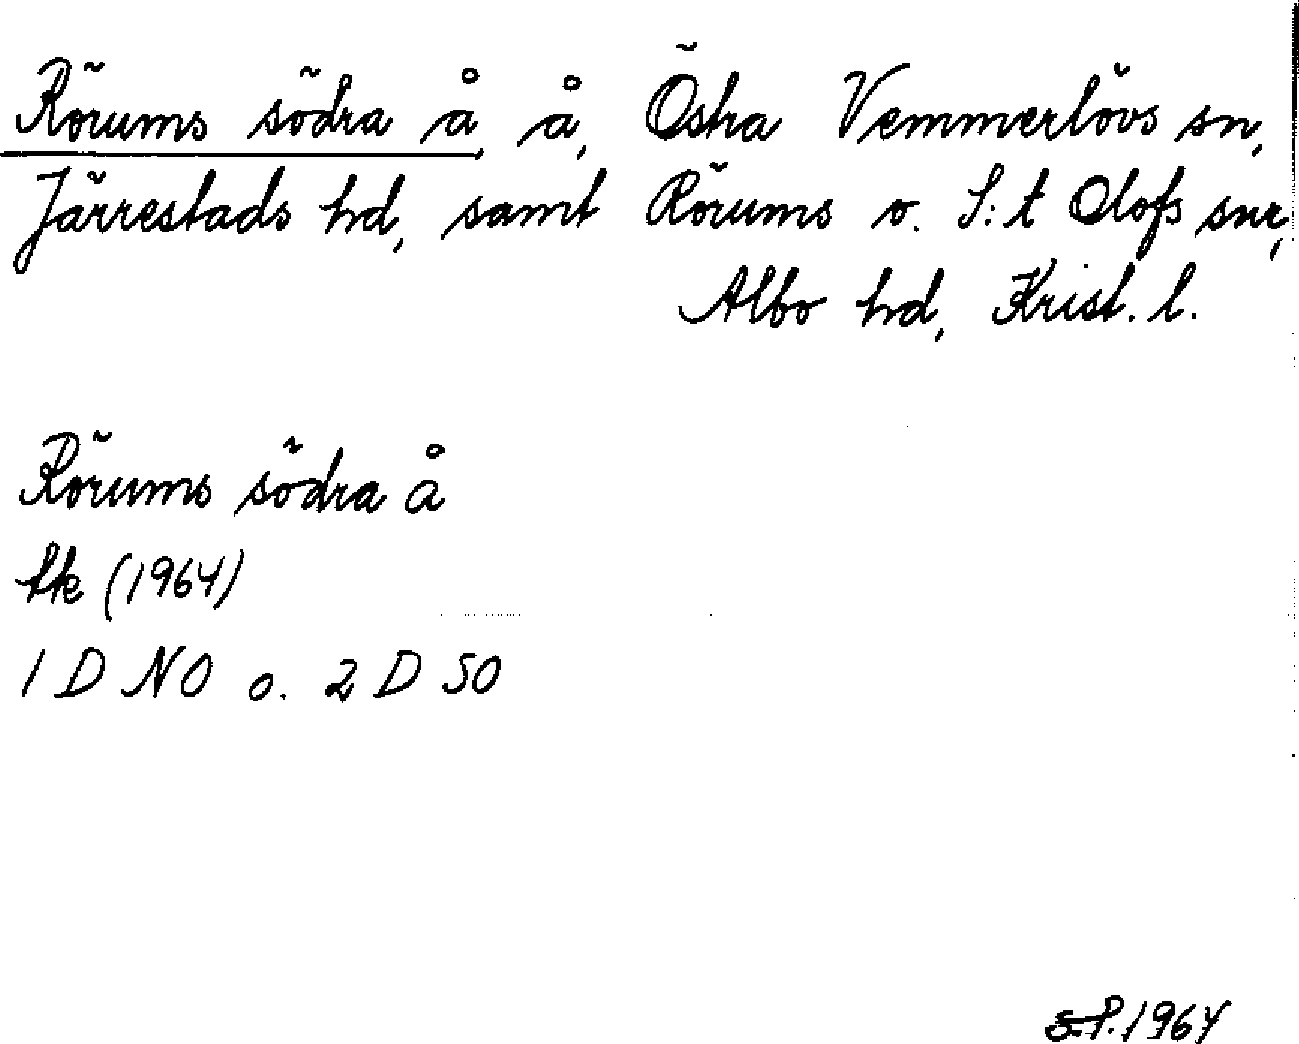 Rörums södra å, å, Östra Vemmerlövs sn,
Järrestads hd, samt Rörums o. S:t Olofs snr,
Albo hd, Krist. l.
Rörums södra å
Ek (1964)
1 D NO o. 2 D SO
S.P. 1964